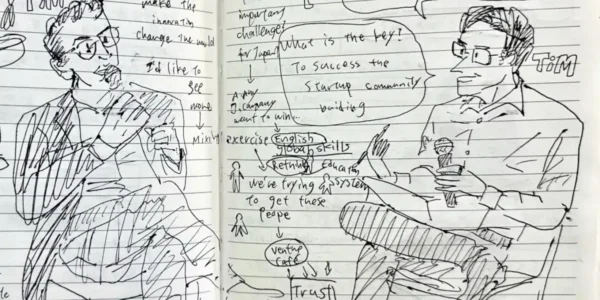 make the
innovation
change the world
I'd like to
see
more
important
challenge?
for Japan?
want to win...
What is the key?
To success the
Startup community
building
TIM
exercise English
global skills
Rethink Education
system
we're trying
to get these
people
venture
café
Trust